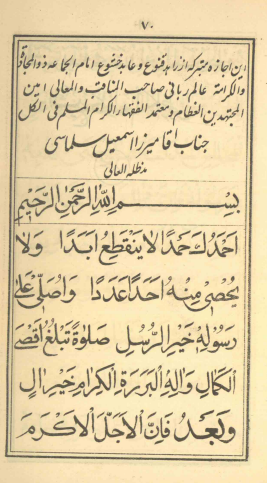 ٧٠
این اجازه متبرکه از زاهد قنوع و عابد خضوع امام الجماعة ذو المجادة
والکرامة عالم ربانی صاحب المناقب والمعالی امین
المجتهدین العظام و معتمد الفقهاء الکرام المسلم فی الکل
جناب آقا میرزا اسمعیل سلماسی
مدظله العالی
بِسْمِ اللهِ الرَّحْمٰنِ الرَّحِيْمِ
اَحْمَدُكَ حَمْدًا لَا يَنْقَطِعُ اَبَدًا وَلَا
يُحْصٰى مِنْهُ اَحَدًا عَدَدًا وَاُصَلِّيْ عَلٰى
رَسُوْلِهِ خَيْرِ الرُّسُلِ صَلٰوةً تَبْلُغُ اَقْصَى
الْكَمَالِ وَاٰلِهِ الْبَرَرَةِ الْكِرَامِ خَيْرِ اٰلٍ
وَبَعْدُ فَاِنَّ الْاَجَلَّ الْاَكْرَمَ